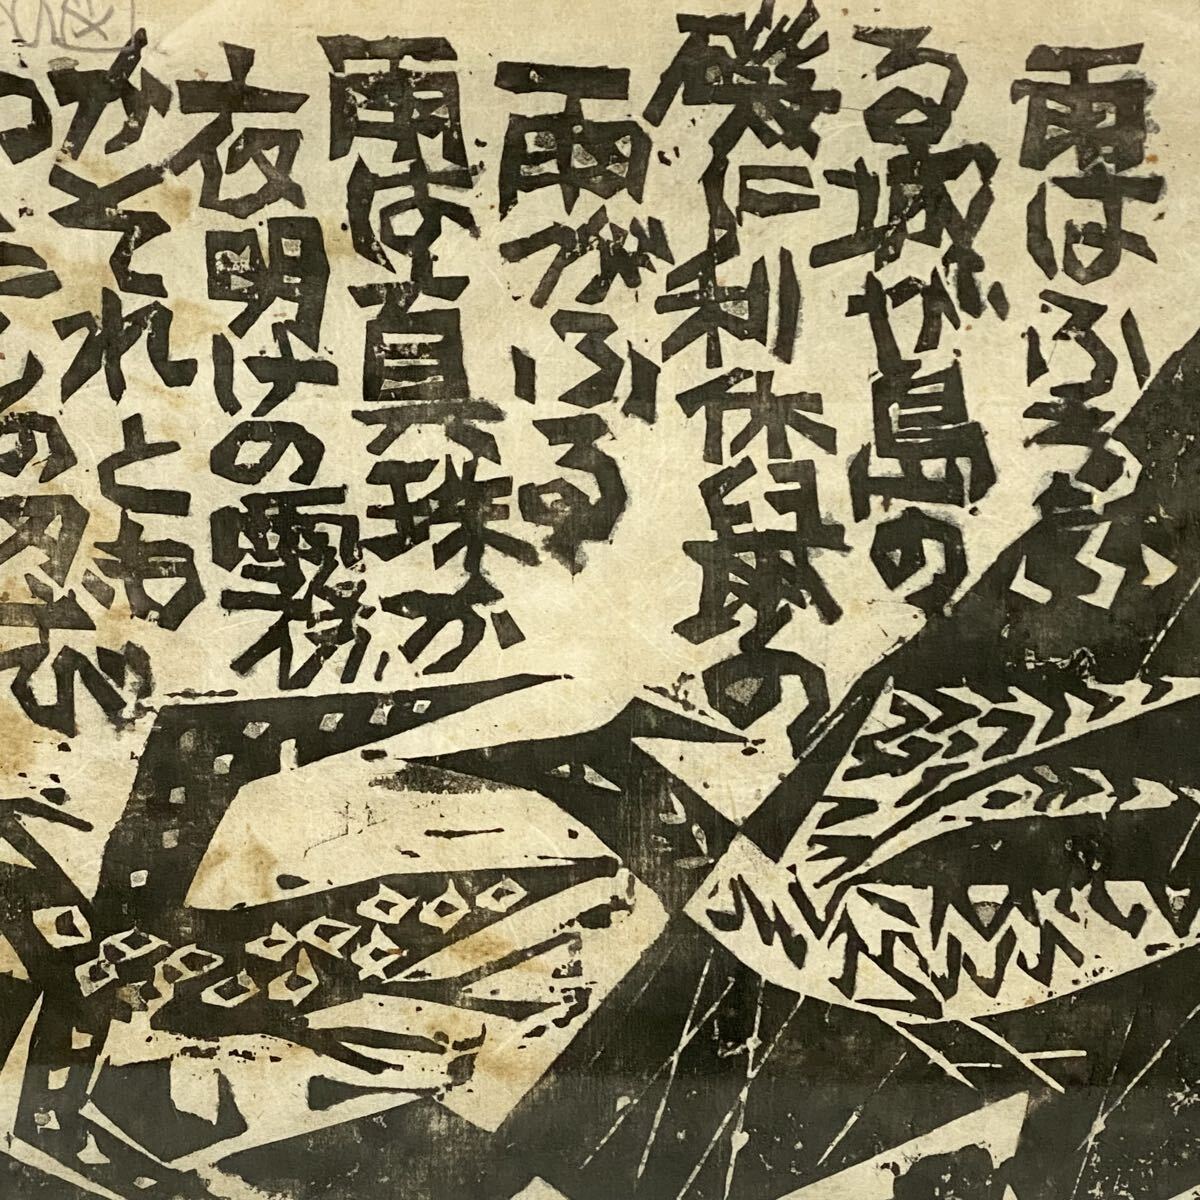 雨はふるふ
る城が島の
磯に利休鼠の
雨がふる
雨は真珠か
夜明けの霧
かそれとも
わたしの忍び